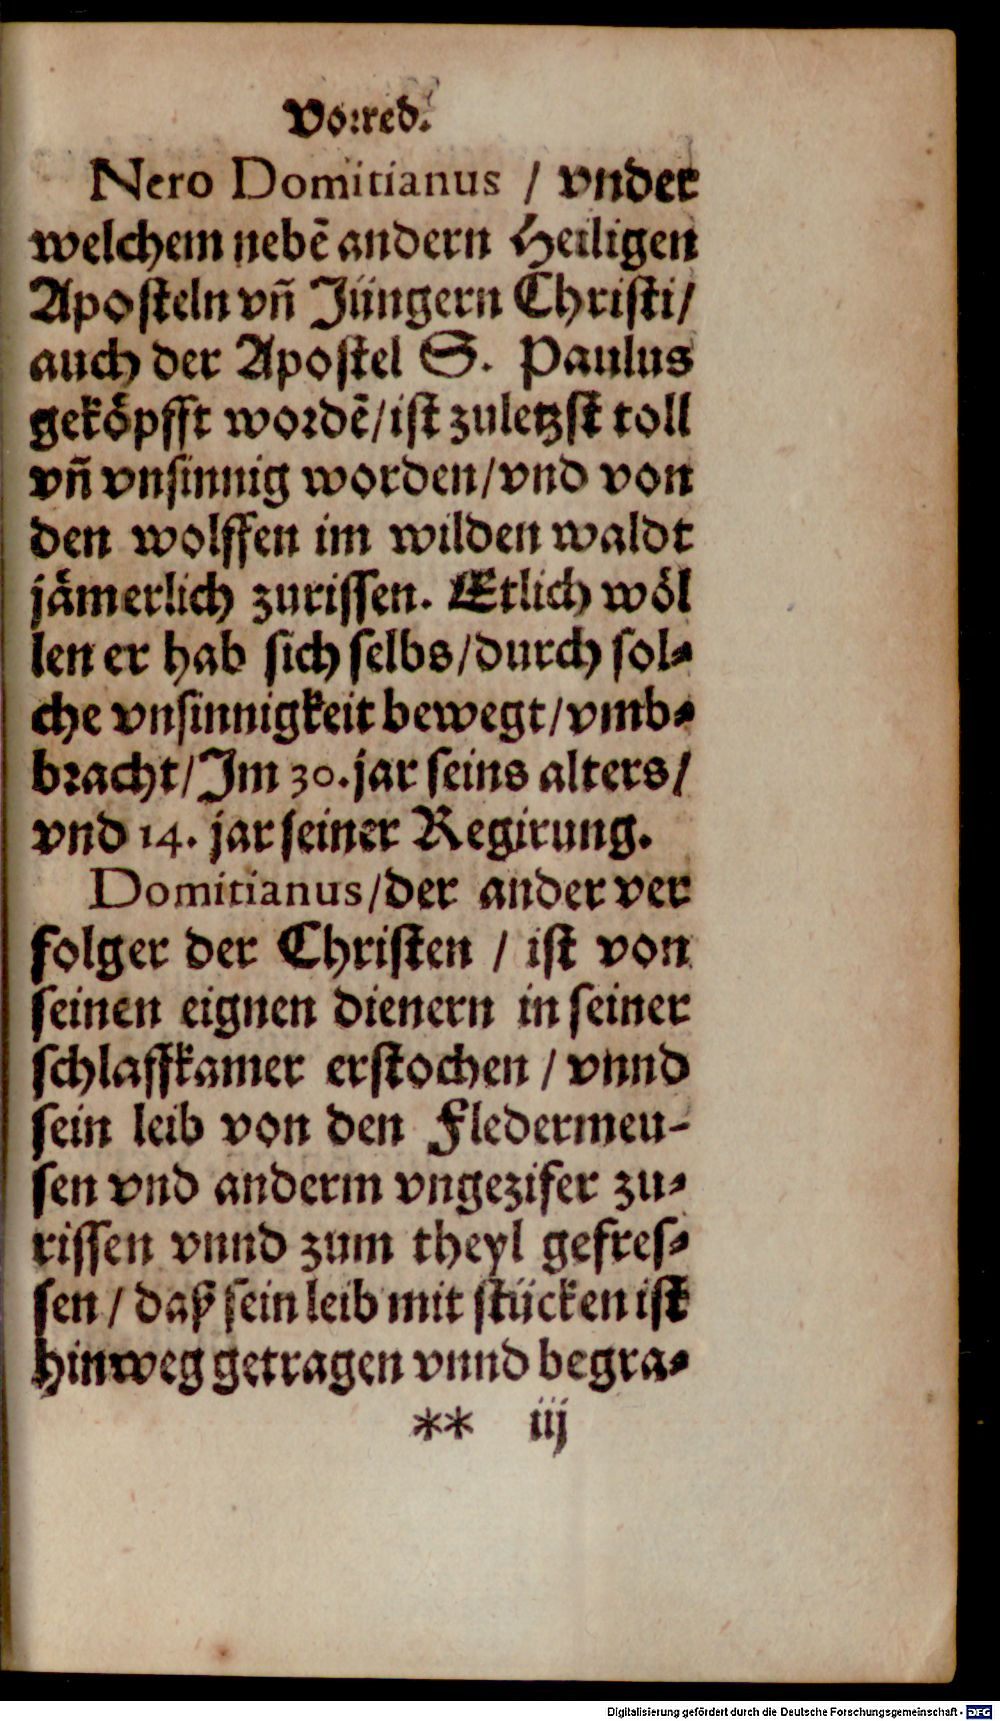 Vorred.
Nero Domitianus / vnder
welchem nebē andern Heiligen
Aposteln vñ Jüngern Christi/
auch der Apostel S. Paulus
geköpfft wordē/ist zuletzst toll
vñ vnsinnig worden/vnd von
den wolffen im wilden waldt
jämerlich zurissen. Etlich wöl
len er hab sich selbs/durch sol-
che vnsinnigkeit bewegt/vmb-
bracht/Im 30. jar seins alters/
vnd 14. jar seiner Regirung.
Domitianus/der ander ver
folger der Christen / ist von
seinen eignen dienern in seiner
schlaffkamer erstochen / vnnd
sein leib von den Fledermeu-
sen vnd anderm vngezifer zu-
rissen vnnd zum theyl gefres-
sen / daß sein leib mit stücken ist
hinweg getragen vnnd begra-
** iij
Digitalisierung gefördert durch die Deutsche Forschungsgemeinschaft - DFG